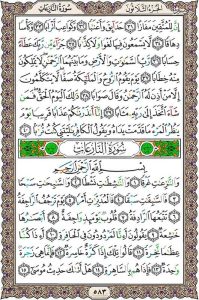 سُورَةُ النَّازِعَاتِ الجُزْءُ الثَّلَاثُونَ
إِنَّ لِلْمُتَّقِينَ مَفَازًا ٣١ حَدَآئِقَ وَأَعْنَٰبًا ٣٢ وَكَوَاعِبَ أَتْرَابًا ٣٣ وَكَأْسًا
دِهَاقًا ٣٤ لَّا يَسْمَعُونَ فِيهَا لَغْوًا وَلَا كِذَّٰبًا ٣٥ جَزَآءً مِّن رَّبِّكَ عَطَآءً
حِسَابًا ٣٦ رَّبِّ ٱلسَّمَٰوَٰتِ وَٱلْأَرْضِ وَمَا بَيْنَهُمَا ٱلرَّحْمَٰنِ لَا يَمْلِكُونَ
مِنْهُ خِطَابًا ٣٧ يَوْمَ يَقُومُ ٱلرُّوحُ وَٱلْمَلَٰٓئِكَةُ صَفًّا لَّا يَتَكَلَّمُونَ
إِلَّا مَنْ أَذِنَ لَهُ ٱلرَّحْمَٰنُ وَقَالَ صَوَابًا ٣٨ ذَٰلِكَ ٱلْيَوْمُ ٱلْحَقُّ فَمَن
شَآءَ ٱتَّخَذَ إِلَىٰ رَبِّهِۦ مَـَٔابًا ٣٩ إِنَّآ أَنذَرْنَٰكُمْ عَذَابًا قَرِيبًا يَوْمَ
يَنظُرُ ٱلْمَرْءُ مَا قَدَّمَتْ يَدَاهُ وَيَقُولُ ٱلْكَافِرُ يَٰلَيْتَنِى كُنتُ تُرَٰبًا ٤٠
سُورَةُ النَّازِعَاتِ
بِسْمِ ٱللَّهِ ٱلرَّحْمَٰنِ ٱلرَّحِيمِ
وَٱلنَّٰزِعَٰتِ غَرْقًا ١ وَٱلنَّٰشِطَٰتِ نَشْطًا ٢ وَٱلسَّٰبِحَٰتِ سَبْحًا
٣ فَٱلسَّٰبِقَٰتِ سَبْقًا ٤ فَٱلْمُدَبِّرَٰتِ أَمْرًا ٥ يَوْمَ تَرْجُفُ ٱلرَّاجِفَةُ
٦ تَتْبَعُهَا ٱلرَّادِفَةُ ٧ قُلُوبٌ يَوْمَئِذٍ وَاجِفَةٌ ٨ أَبْصَٰرُهَا خَٰشِعَةٌ
٩ يَقُولُونَ أَءِنَّا لَمَرْدُودُونَ فِى ٱلْحَافِرَةِ ١٠ أَءِذَا كُنَّا
عِظَٰمًا نَّخِرَةً ١١ قَالُوا۟ تِلْكَ إِذًا كَرَّةٌ خَاسِرَةٌ ١٢ فَإِنَّمَا هِىَ زَجْرَةٌ
وَٰحِدَةٌ ١٣ فَإِذَا هُم بِٱلسَّاهِرَةِ ١٤ هَلْ أَتَىٰكَ حَدِيثُ مُوسَىٰٓ ١٥
٥٨٣